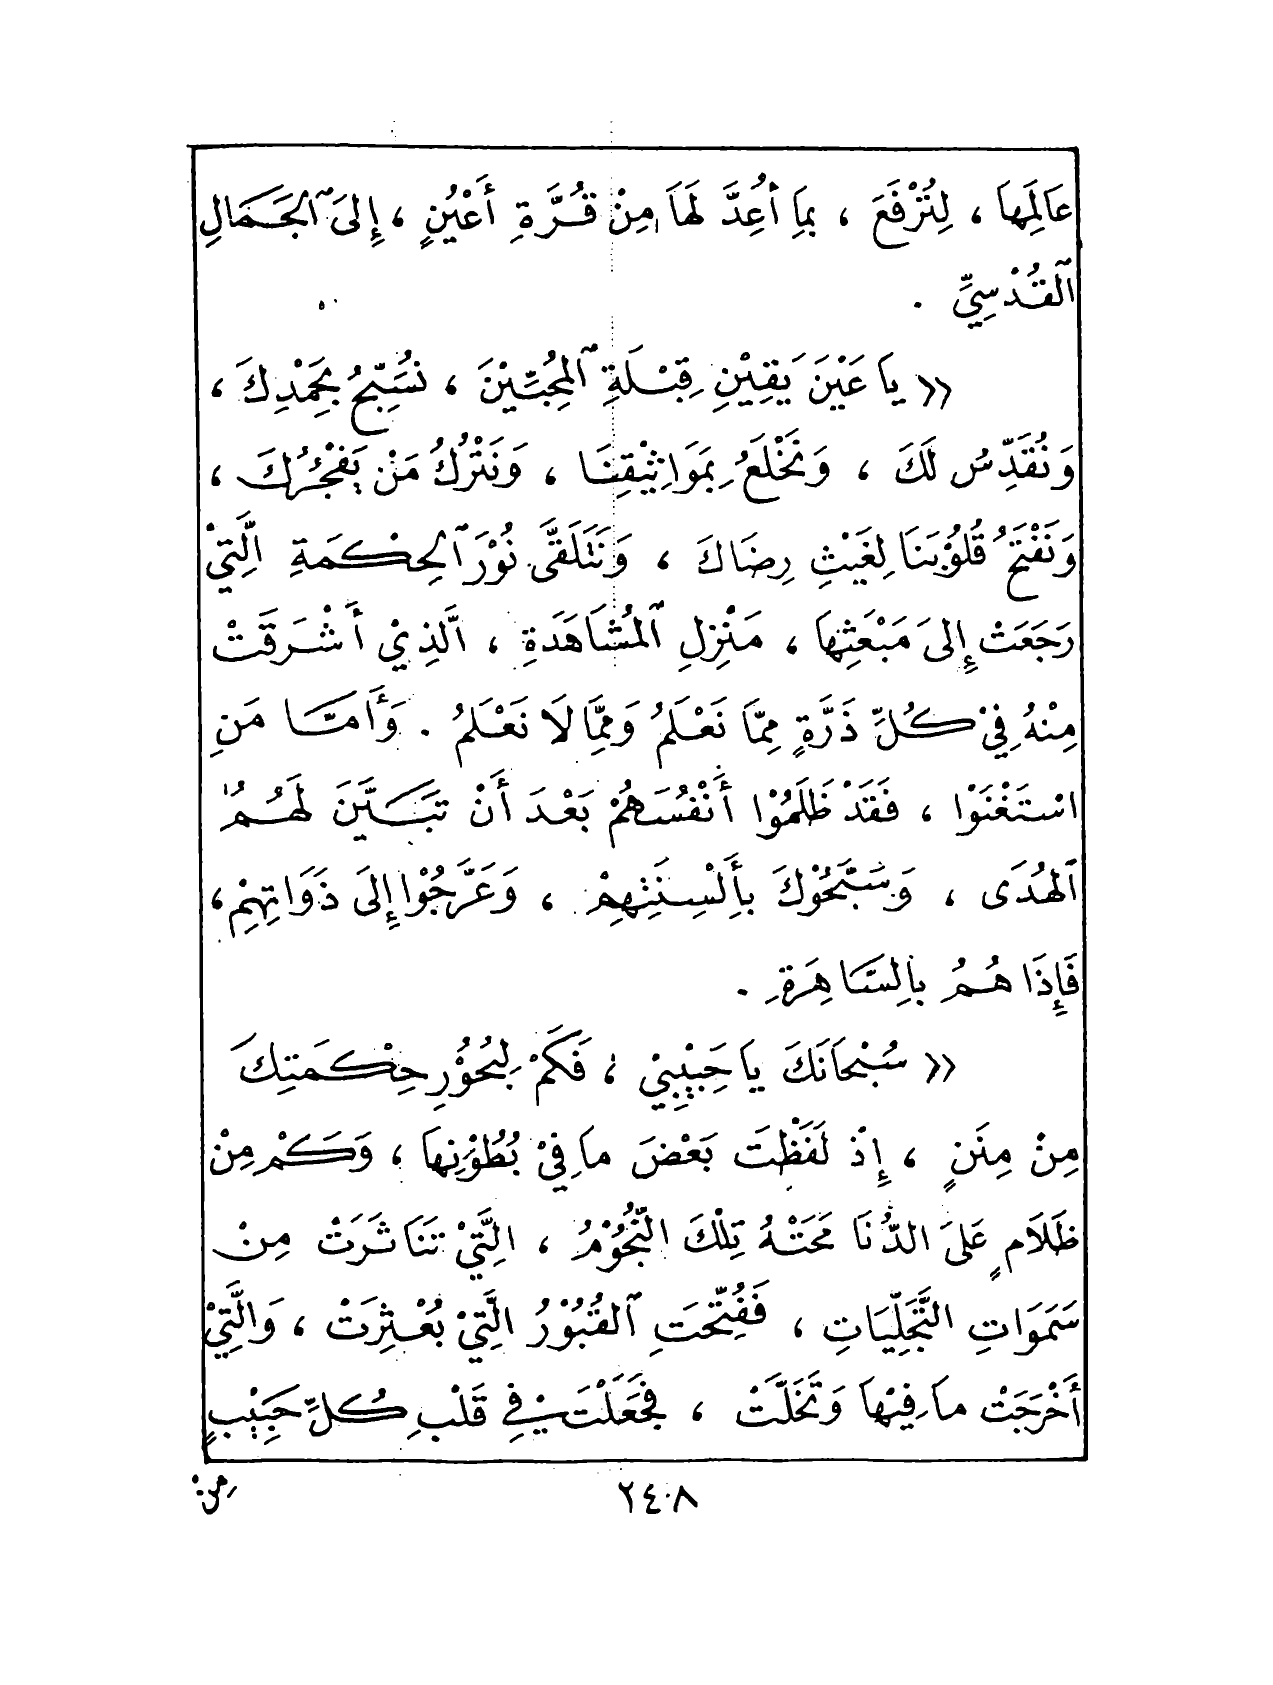 عَالَمِهَا ، لِتُرْفَعَ ، بِمَا أُعِدَّ لَهَا مِنْ قُرَّةِ أَعْيُنٍ ، إِلَى ٱلْجَمَالِ
ٱلْقُدْسِيِّ .
« يَا عَيْنَ يَقِيْنِ قِبْلَةِ ٱلْمُحِبِّيْنَ ، نُسَبِّحُ بِحَمْدِكَ ،
وَنُقَدِّسُ لَكَ ، وَنَخْلَعُ بِمَوَاثِيْقِنَا ، وَنَتْرُكُ مَنْ يَفْجُرُكَ ،
وَنَفْتَحُ قُلُوْبَنَا لِغَيْثِ رِضَاكَ ، وَنَتَلَقَّى نُوْرَ ٱلْحِكْمَةِ الَّتِيْ
رَجَعَتْ إِلَى مَبْعَثِهَا ، مَنْزِلِ ٱلْمُشَاهَدَةِ ، الَّذِيْ أَشْرَقَتْ
مِنْهُ فِيْ كُلِّ ذَرَّةٍ مِمَّا نَعْلَمُ وَمِمَّا لَا نَعْلَمُ . وَأَمَّا مَنِ
اسْتَغْنَوْا ، فَقَدْ ظَلَمُوْا أَنْفُسَهُمْ بَعْدَ أَنْ تَبَيَّنَ لَهُمُ
ٱلْهُدَى ، وَسَبَّحُوْكَ بِأَلْسِنَتِهِمْ ، وَعَرَّجُوْا إِلَى ذَوَاتِهِمْ ،
فَإِذَا هُمُ بِالسَّاهِرَةِ .
« سُبْحَانَكَ يَا حَبِيْبِيْ ، فَكَمْ لِبُحُوْرِ حِكْمَتِكَ
مِنْ مِنَنٍ ، إِذْ لَفَظْتَ بَعْضَ مَا فِيْ بُطُوْنِهَا ، وَكَمْ مِنْ
ظَلَامٍ عَلَى الدُّنَا مَحَتْهُ تِلْكَ النُّجُوْمُ ، الَّتِيْ تَنَاثَرَتْ مِنْ
سَمَوَاتِ التَّجَلِّيَاتِ ، فَفُتِّحَتِ ٱلْقُبُوْرُ الَّتِيْ بُعْثِرَتْ ، وَالَّتِيْ
أَخْرَجَتْ مَا فِيْهَا وَتَخَلَّتْ ، فَجَعَلْتَ فِيْ قَلْبِ كُلِّ حَبِيْبٍ
٢٤٠٨
مِنْ